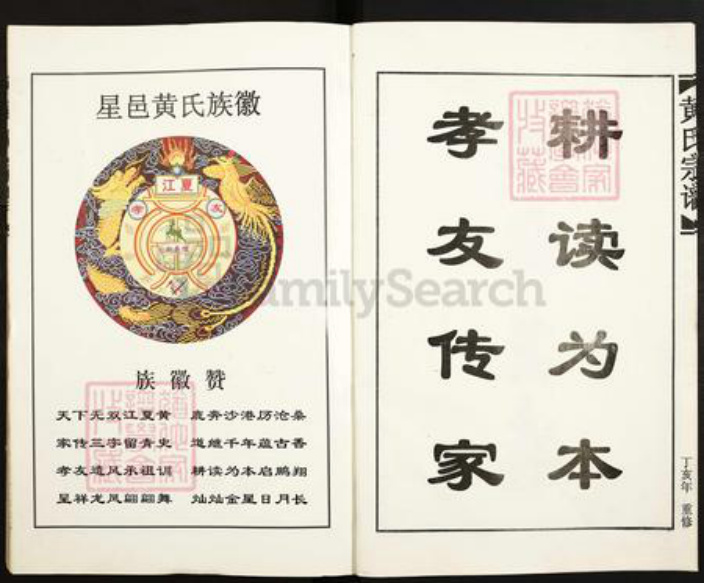 星邑黄氏族徽
江夏
孝 友
族徽赞
天下无双江夏黄 鹿奔沙港历沧桑
家传三字留青史 道继千年蕴古香
孝友遗风承祖训 耕读为本启鹏翔
呈祥龙凤翩翩舞 灿灿金星日月长
耕读为本
孝友传家
黄氏宗谱
丁亥年 重修
FamilySearch